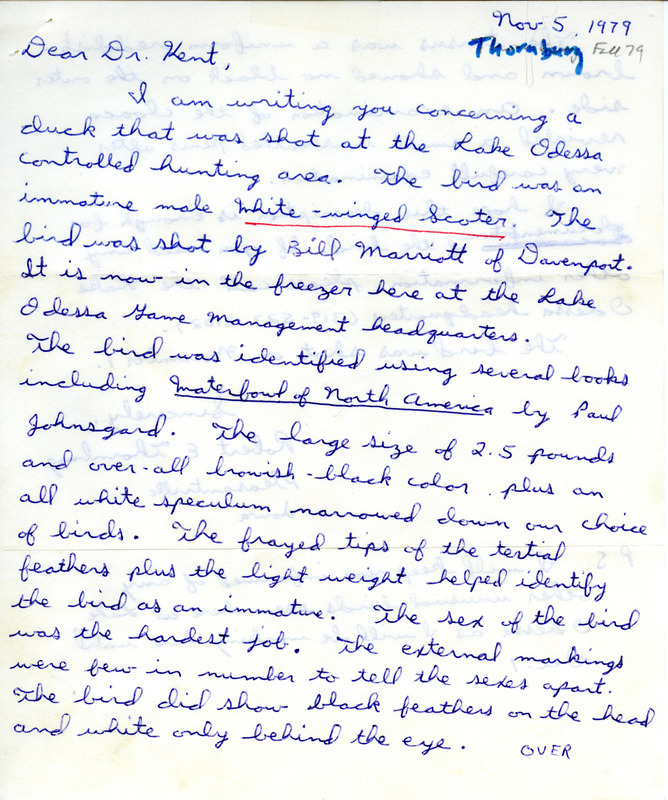 Nov 5, 1979
Thornburg Fall 79
Dear Dr. Kent,
I am writing you concerning a
duck that was shot at the Lake Odessa
controlled hunting area. The bird was an
immature male White-winged Scoter. The
bird was shot by Bill Marriott of Davenport.
It is now in the freezer here at the Lake
Odessa Game Management headquarters.
The bird was identified using several books
including Waterfowl of North America by Paul
Johnsgard. The large size of 2.5 pounds
and over-all browish-black color plus an
all white speculum narrowed down our choice
of birds. The frayed tips of the tertial
feathers plus the light weight helped identify
the bird as an immature. The sex of the bird
was the hardest job. The external markings
were few in number to tell the sexes apart.
The bird did show black feathers on the head
and white only behind the eye. OVER